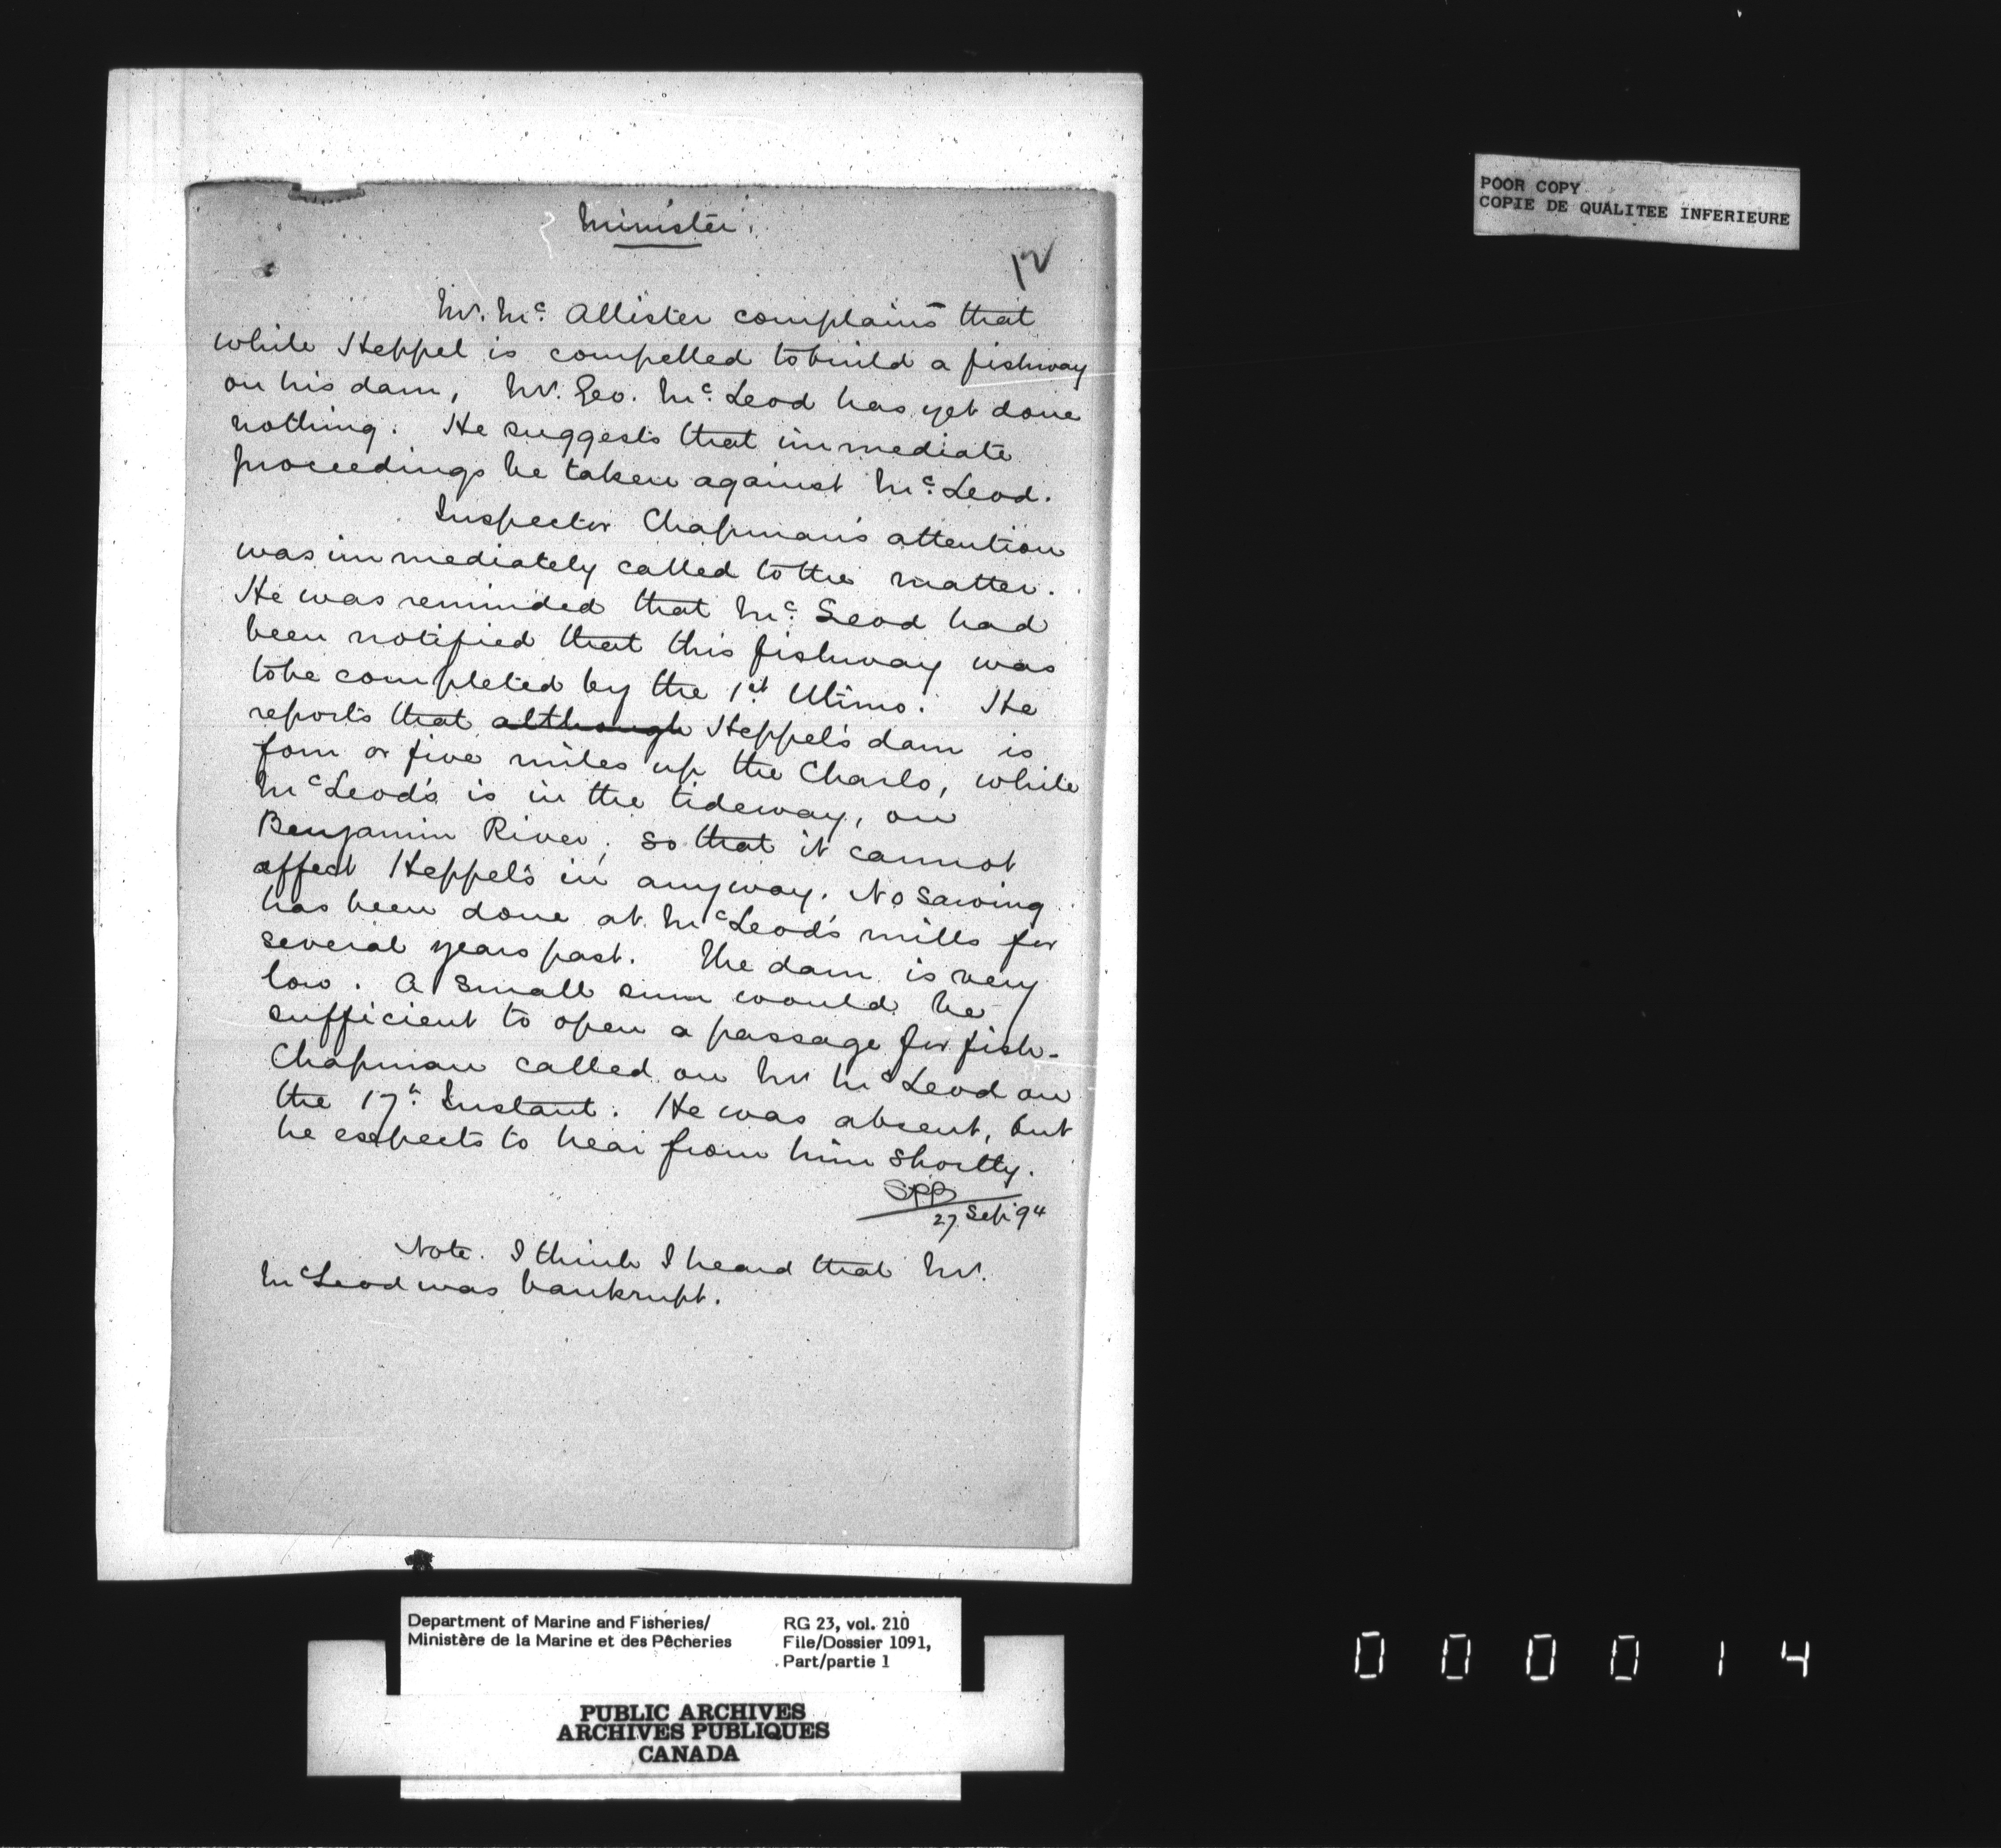 Minister.
12
Mr. Mc. Allister complains that
while Heppel is compelled to build a fishway
on his dam, Mr. Geo. Mc. Leod has yet done
nothing. He suggests that immediate
proceedings be taken against Mc. Leod.
Inspector Chapman's attention
was immediately called to the matter.
He was reminded that Mc. Leod had
been notified that this fishway was
to be completed by the 1st Ultimo. He
reports that although Heppel's dam is
four or five miles up the Charlo, while
McLeod's is in the tideway, on
Benjamin River, so that it cannot
affect Heppel's in anyway. No sawing
has been done at McLeod's mills for
several years past. The dam is very
low. A small sum would be
sufficient to open a passage for fish.
Chapman called on Mr McLeod on
the 17th Instant. He was absent, but
he expects to hear from him shortly.
27 Sep 94
Note. I think I heard that Mr.
McLeod was bankrupt.
POOR COPY
COPIE DE QUALITEE INFERIEURE
Department of Marine and Fisheries/
Ministère de la Marine et des Pêcheries
RG 23, vol. 210
File/Dossier 1091,
Part/partie 1
PUBLIC ARCHIVES
ARCHIVES PUBLIQUES
CANADA
000014